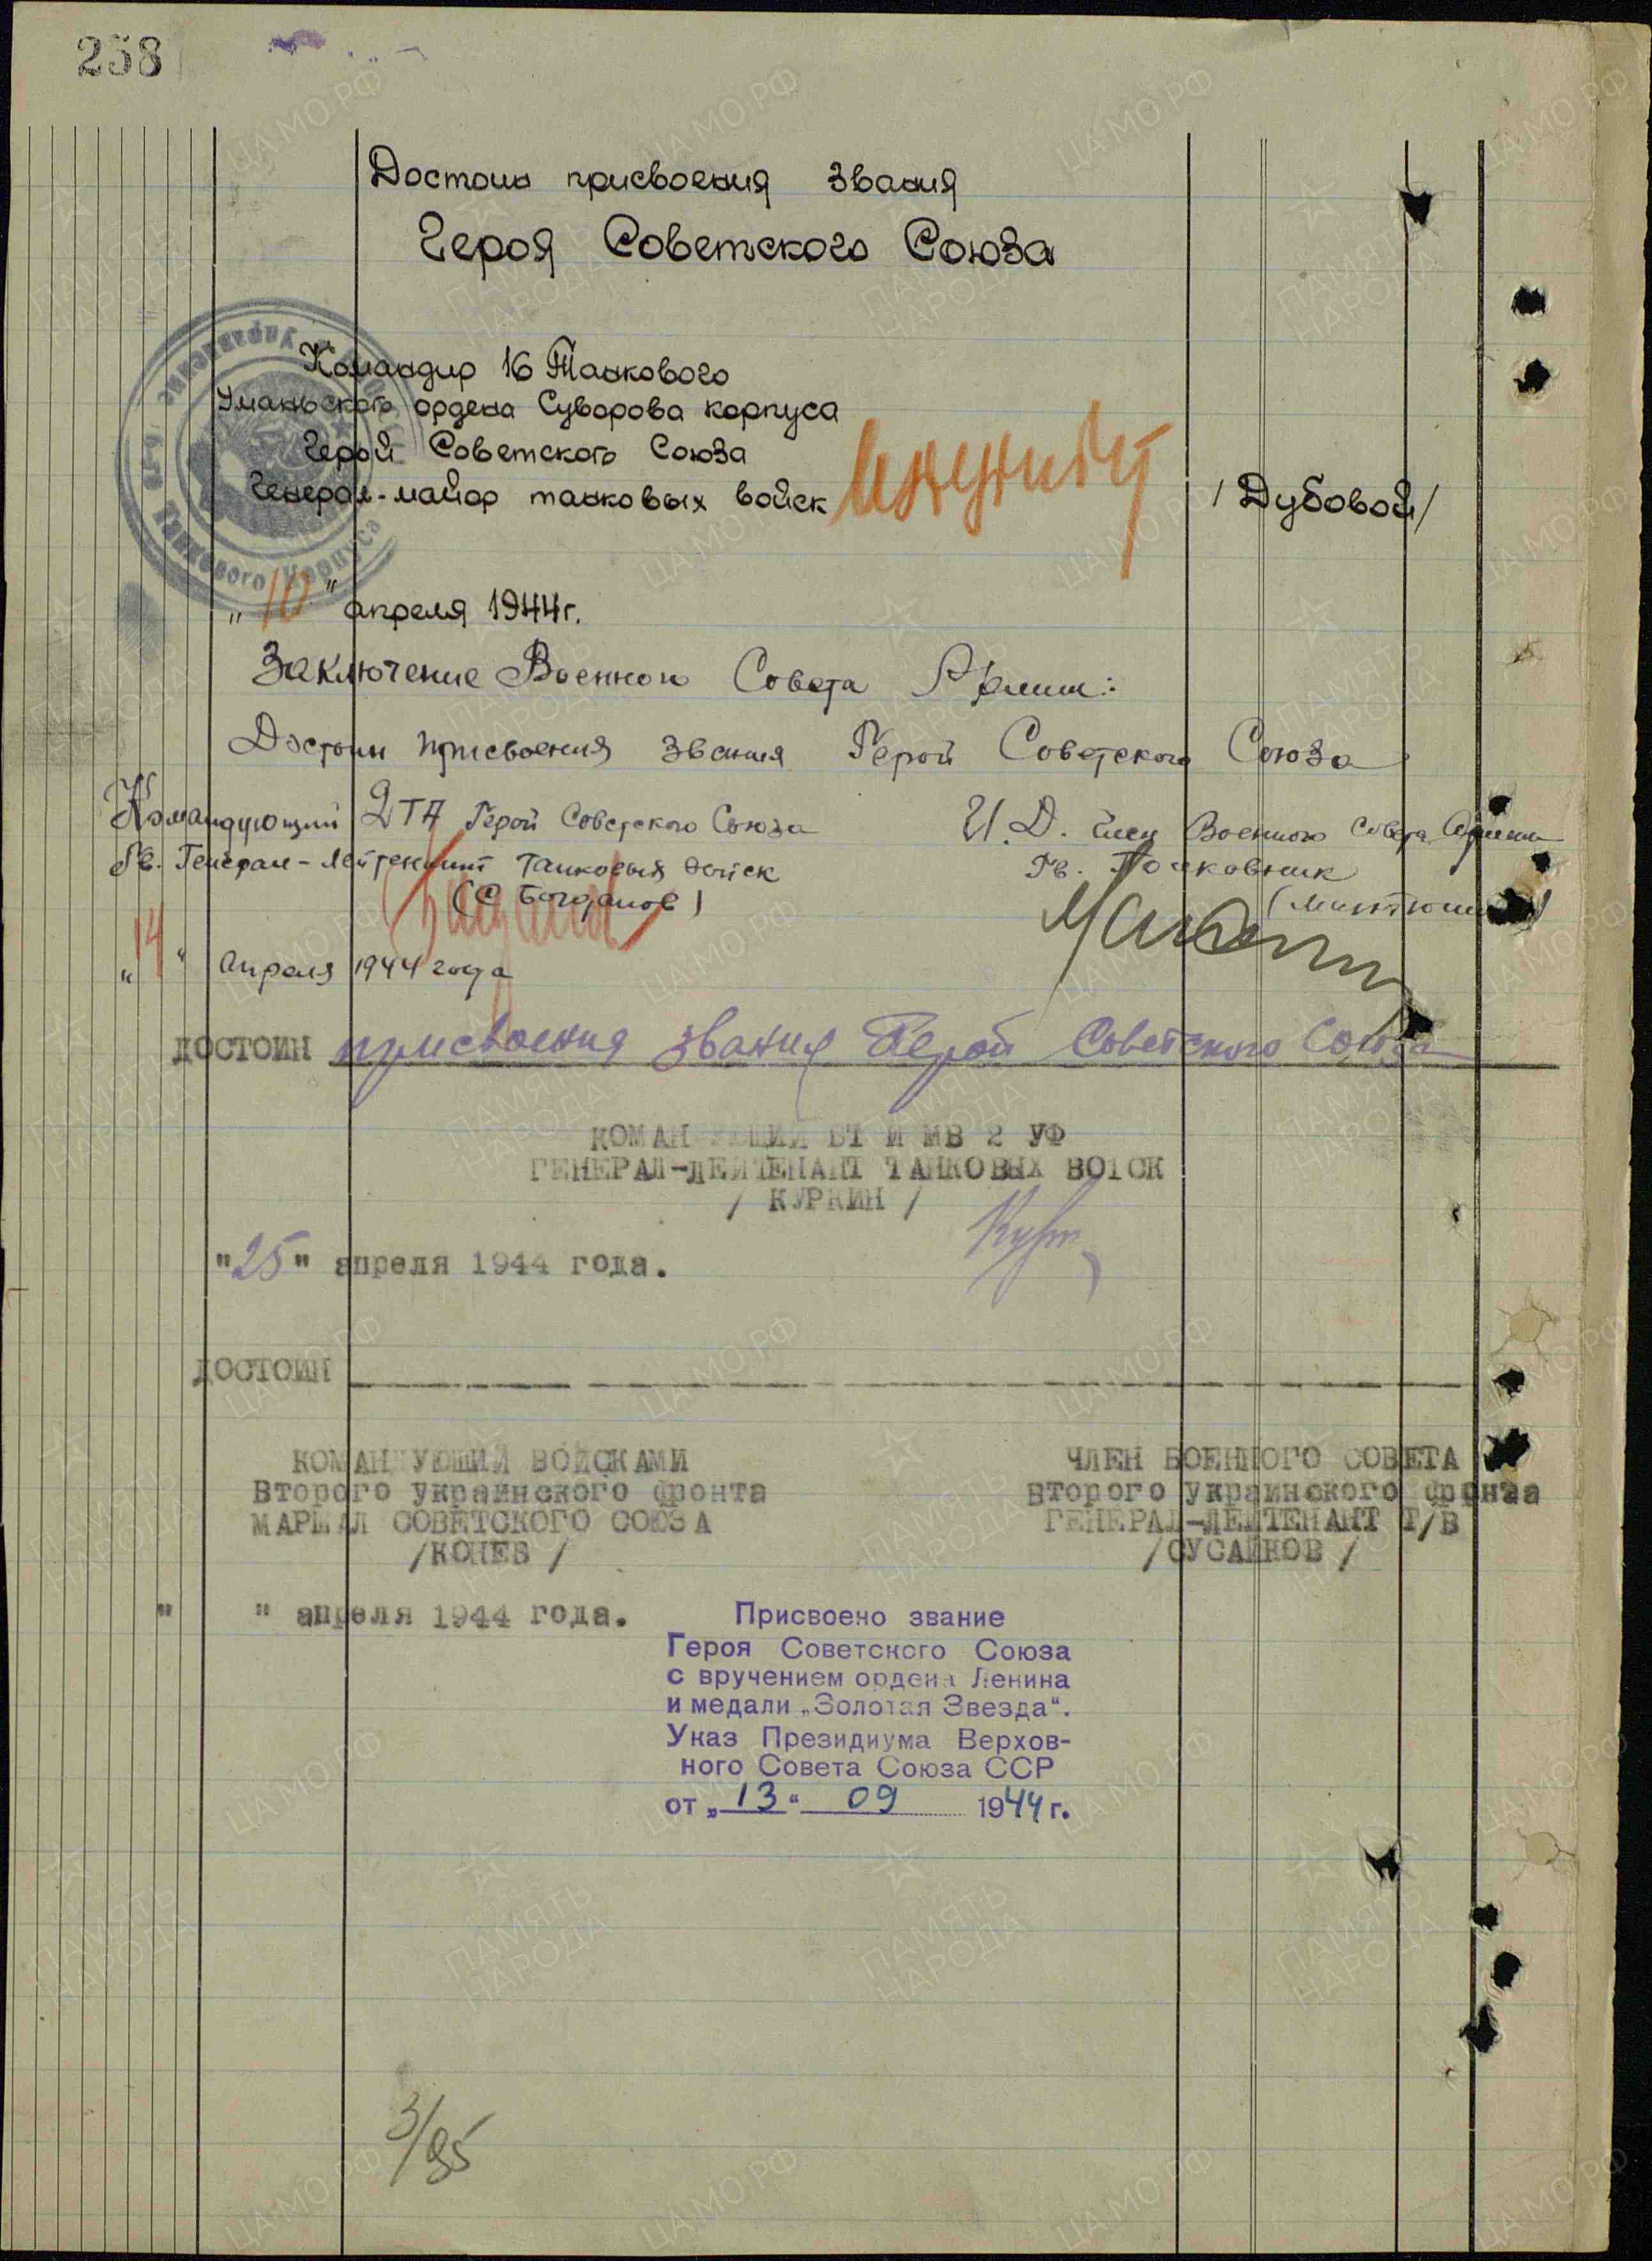 258
Достоин присвоения звания
Героя Советского Союза
Командир 16 Танкового
Уманьского ордена Суворова корпуса
Герой Советского Союза
Генерал-майор танковых войск /Дубовой/
"10" апреля 1944г.
Заключение Военного Совета Армии:
Достоин присвоения звания Герой Советского Союза
Командующий 2ТА Герой Советского Союза
Гв. Генерал-Лейтенант танковых войск
(С Богданов)
И.Д. Член Военного Совета Армии
Гв. Полковник
"14" Апреля 1944 года
ДОСТОИН присвоения звания Герой Советского Союза
КОМАНДУЮЩИЙ БТ И МВ 2 УФ
ГЕНЕРАЛ-ЛЕЙТЕНАНТ ТАНКОВЫХ ВОЙСК
/ КУРКИН /
"25" апреля 1944 года.
ДОСТОИН
КОМАНДУЮЩИЙ ВОЙСКАМИ
Второго украинского фронта
МАРШАЛ СОВЕТСКОГО СОЮЗА
/КОНЕВ /
ЧЛЕН ВОЕННОГО СОВЕТА
Второго украинского фронта
ГЕНЕРАЛ-ЛЕЙТЕНАНТ Т/В
/СУСАЙКОВ /
" " апреля 1944 года.
Присвоено звание
Героя Советского Союза
с вручением ордена Ленина
и медали „Золотая Звезда“.
Указ Президиума Верхов-
ного Совета Союза ССР
от „13“ 09 1944 г.
3/95